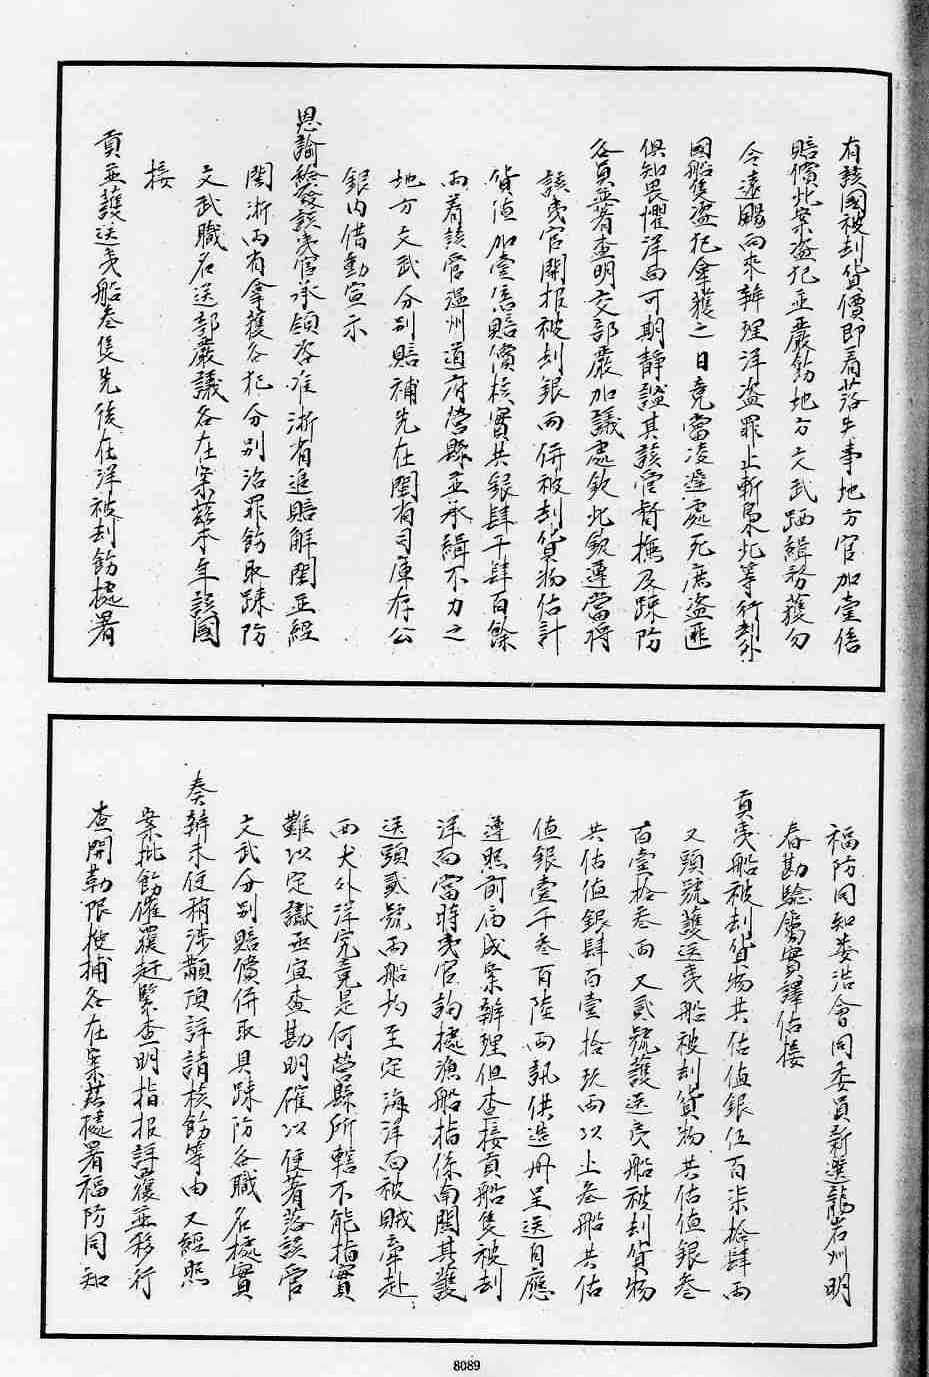 有該國被刦貨價即着落失事地方官加壹倍
賠償此案盗犯並嚴飭地方文武晒緝務獲勿
令遠颺向來辦理洋盗罪止斬梟此等行刦外
國船隻盗犯拿獲之日竟當凌遲處死庶盗匪
俱知畏懼洋面可期靜謐其該管督撫及踈防
各員並着查明交部嚴加議處欽此欽遵當將
該夷官開报被刦銀两併被刦貨物估計
貨值加壹倍賠償核實共銀肆千肆百餘
两着該管温州道府營縣並承緝不力之
地方文武分别賠補先在閩省司庫存公
銀内借動宣示
恩諭給發該夷官承領咨准浙省追賠解閩並經
閩浙两省拿獲各犯分别治罪飭取踈防
文武職名送部嚴議各在案茲本年該國
接
貢並護送夷船叁隻先後在洋被刦飭據署
福防同知婁浩會同委員新選龍岩州明
春勘驗屬實譯估接
貢夷船被刦貨物共估值銀伍百柒拾肆两
又頭號護送夷船被刦貨物共估值銀叁
百壹拾叁两又貳號護送夷船被刦貨物
共估值銀肆百壹拾玖两以上叁船共估
值銀壹千叁百陸两訊供造册呈送自應
遵照前届成案辦理但查接貢船隻被刦
洋面當時夷官詢據漁船指係南関其護
送頭貳號两船均至定海洋面被賊牽赴
西犬外洋究竟是何營縣所轄不能指實
難以定讞亟宜查勘明確以便著落該管
文武分别賠償併取具踈防各職名據實
奏辦未便稍涉顢頇詳請核飭等由又經照
案批飭催覆赶緊查明指报詳覆並移行
查開勒限捜捕各在案茲據署福防同知
8089